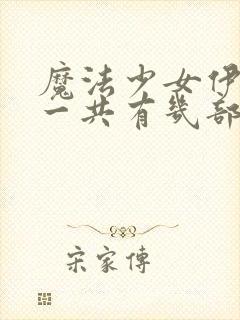 魔法少女伊
一共有幾部
宋家傳